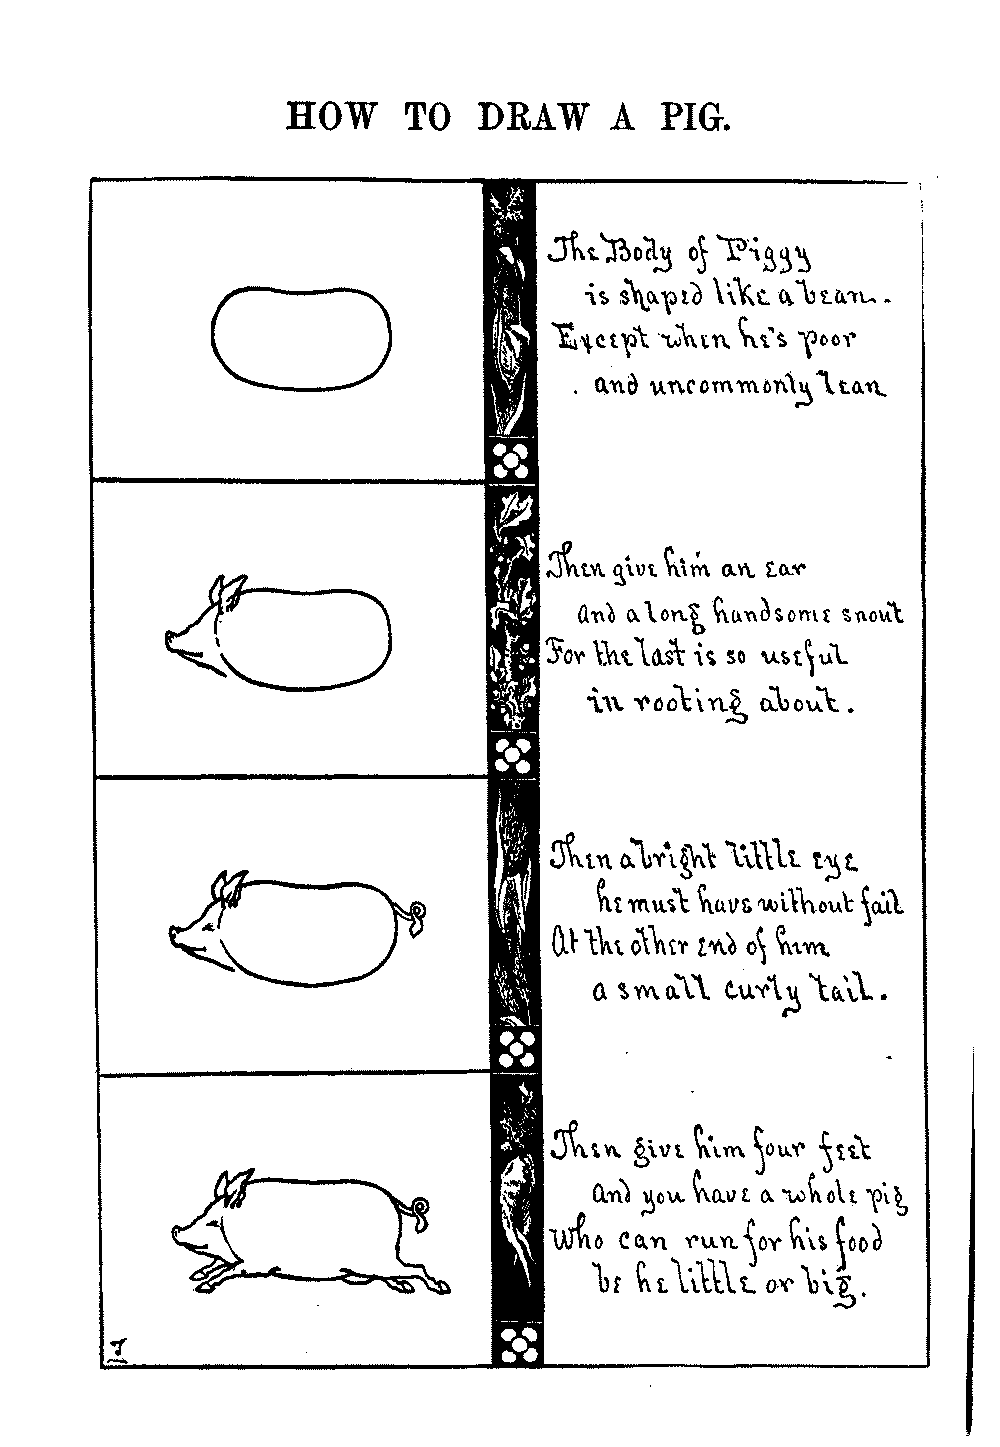 HOW TO DRAW A PIG.
The Body of Piggy
is shaped like a bean.
Except when he's poor
and uncommonly lean
Then give him an ear
and a long handsome snout
For the last is so useful
in rooting about.
Then a bright little eye
he must have without fail
At the other end of him
a small curly tail.
Then give him four feet
and you have a whole pig
Who can run for his food
be he little or big.